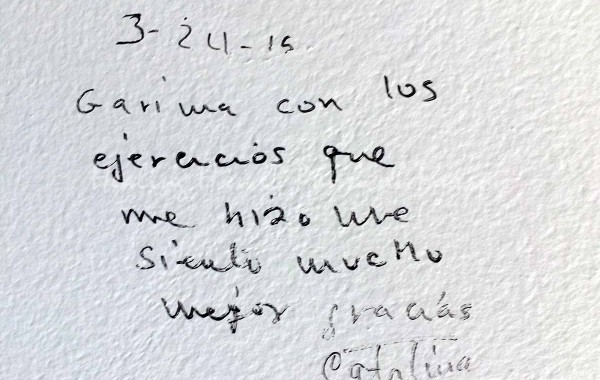 3-24-15
Garima con los
ejercicios que
me hizo me
siento mucho
mejor gracias
Catalina